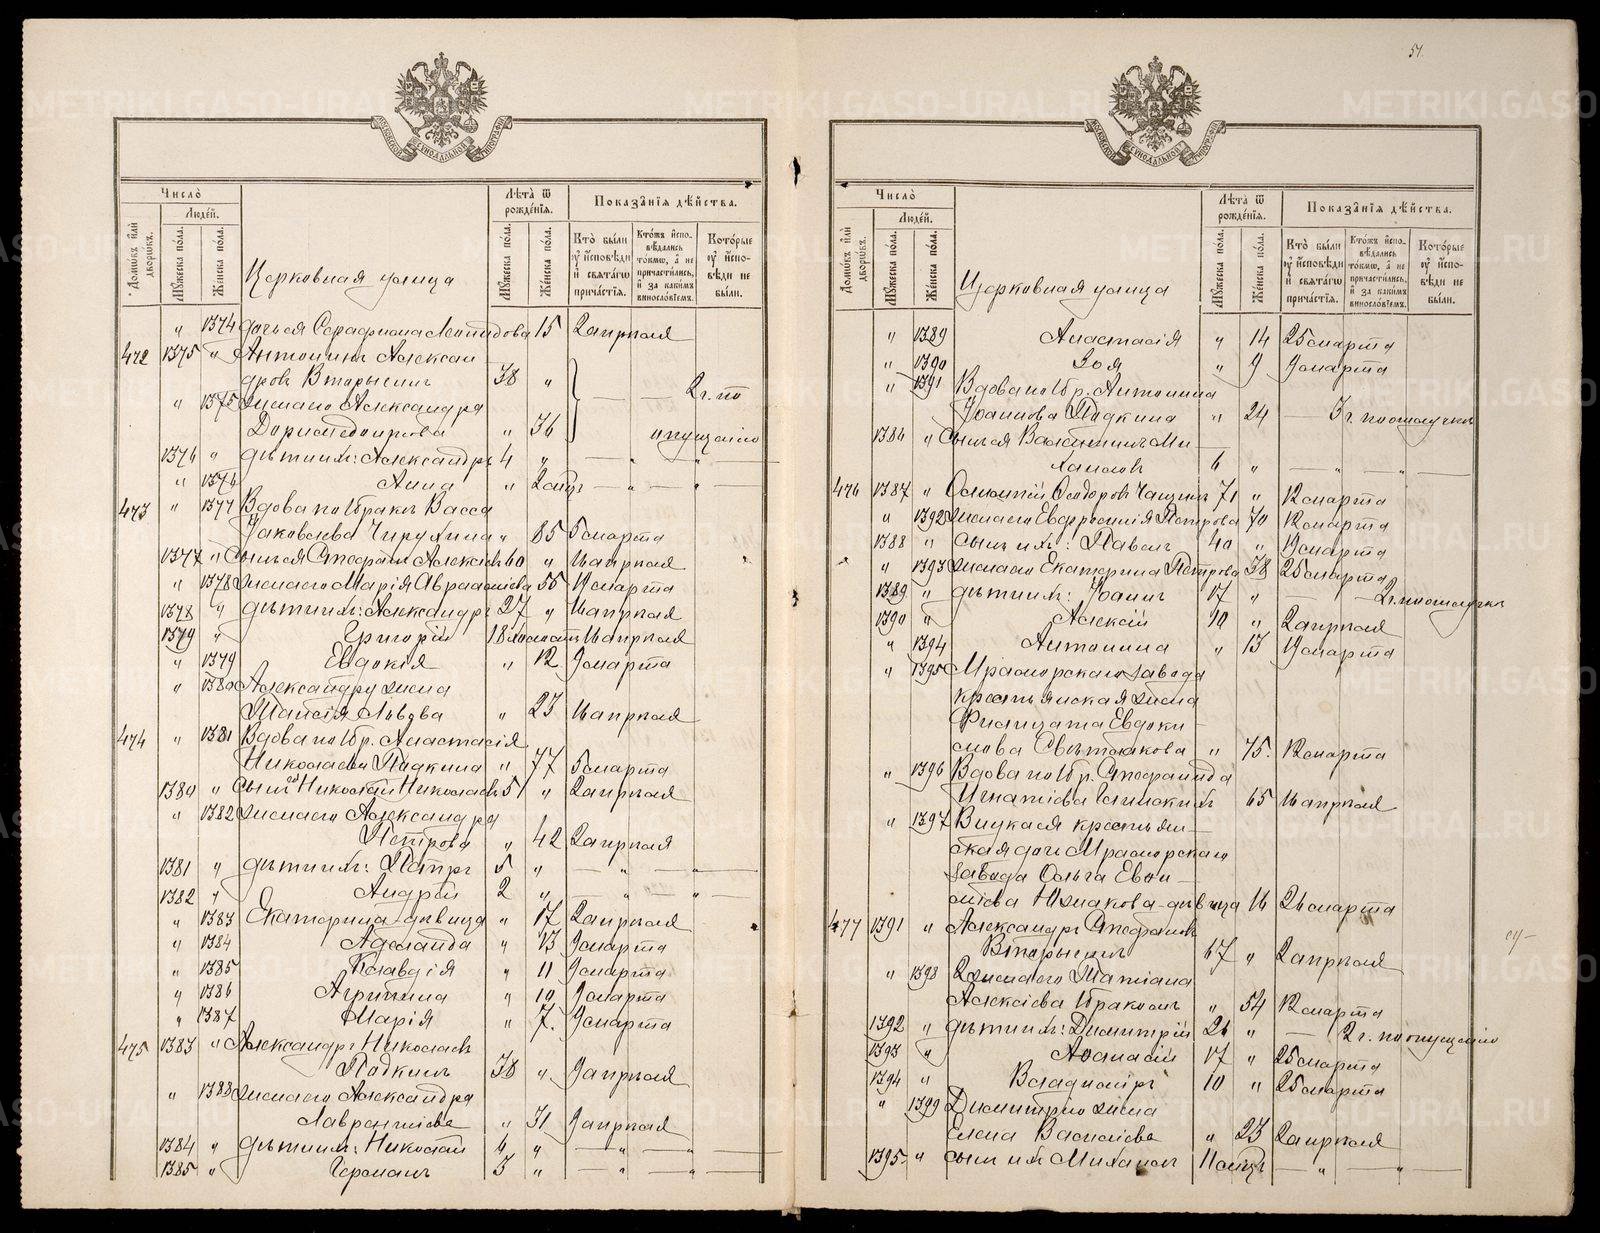 51.
МОСКОВСКОЙ СѴНОДАЛЬНОЙ ТИПОГРАФІИ
Число̀
Людей.
Домѡвъ и҆лѝ дворѡвъ.
Мꙋжеска по́ла.
Же́нска по́ла.
Церковная улица
Лѣта̀ ѿ рожде́нїѧ.
Мꙋжеска по́ла.
Же́нска по́ла.
Показа̑нїѧ дѣ́йства.
Кто̀ бы́ли ᲂу҆ и҆сповѣ́ди и҆ свѧта́гѡ прича́стїѧ.
Кто́жъ и҆спо-вѣдались то́кмѡ, а҆ не причасти́лись, и҆ за каки́мъ винословїемъ.
Кото́рые ᲂу҆ и҆спо-вѣди не бы́ли.
" 1374 дочь ея Серафима 15 2 апрѣля
472 1375 " Антонинъ Алексан
дровъ Вторыгинъ 38 " 2 г. по
" 1375 жена его Александра
" 36 опущенію
1376 " дѣти ихъ: Александръ 4 " — " — " —
" 1376 Анна " — " — " —
473 " 1377 Вдова по Васса
Іаковлева " 85 5 марта
1377 " Сынъ ея Стефанъ Алексѣевъ 60 " апрѣля
" 1378 жена его Марія Авраамова 55 марта
1378 " дѣти ихъ: Александръ 27 " апрѣля
1379 " Григорій 18 холостъ апрѣля
" 1379 Евдокія " 12 9 марта
" 1380 Александру жена
Львова " 23 апрѣля
474 " 1381 Вдова по Анастасія
Николаева Падкина " 77 5 марта
1380 " Сынъ ея Николай Николаевъ 51 " 2 апрѣля
" 1382 жена его Александра
Петрова " 42 2 апрѣля
1381 " дѣти ихъ: Петръ 5 " — " — " —
1382 " Андрей 2 " — " — " —
" 1383 Екатерина дѣвица " 17 2 апрѣля
" 1384 Аделаида " 13 9 марта
" 1385 Клавдія " 11 9 марта
" 1386 Агрипина " 10 9 марта
" 1387 Марія " 7. 9 марта
475 1383 " Александръ Николаевъ
Падкинъ 38 " 9 апрѣля
" 1388 жена его Александра
Лаврентіева " 31 9 апрѣля
1384 " дѣти ихъ: Николай 6 " — " — " —
1385 " Германъ 3 " — " — " —
Число̀
Людей.
Домѡвъ и҆лѝ дворѡвъ.
Мꙋжеска по́ла.
Же́нска по́ла.
Церковная улица
Лѣта̀ ѿ рожде́нїѧ.
Мꙋжеска по́ла.
Же́нска по́ла.
Показа̑нїѧ дѣ́йства.
Кто̀ бы́ли ᲂу҆ и҆сповѣ́ди и҆ свѧта́гѡ прича́стїѧ.
Кто́жъ и҆спо-вѣдались то́кмѡ, а҆ не причасти́лись, и҆ за каки́мъ винословїемъ.
Кото́рые ᲂу҆ и҆спо-вѣди не бы́ли.
" 1389 Анастасія " 14 25 марта
" 1390 Зоя " 9 9 марта
" 1391 Вдова по бр. Антонина
Іоаннова Падкина " 24 — 3 г. по отлучкѣ
1386 " Сынъ ея Валентинъ Ми
хаиловъ 6 " — " — " —
476 1387 " Ѳеодоровъ 71 " 12 марта
" 1392 жена его Евфросинія Петрова 70 12 марта
1388 " сынъ ихъ: Павелъ 40 " 19 марта
" 1393 жена его Екатерина Петрова 38 25 марта
1389 " дѣти ихъ: Іоаннъ 17 " — 2 г. по отлучкѣ
1390 " Алексій 10 " 2 апрѣля
" 1394 Антонина " 13 19 марта
" 1395 Мраморскаго завода
крестьянская жена
Евдоки
мова " 75. 12 марта
" 1396 Вдова по бр. Стефанида
Игнатіева 65 апрѣля
" 1397 Внучка ея крестьян—
ская дочь Мраморскаго
завода Ольга
дѣвица 16 26 марта
477 1391 " Александръ Стефановъ
Вторыгинъ 67 " 2 апрѣля
" 1398 2 жена его Татіана
Алексіева " 54 12 марта
1392 " дѣти ихъ: Димитрій 26 " — 2 г. по опущенію
1393 " Аѳанасій 17 " 25 марта
1394 " Владиміръ 10 " 25 марта
" 1399 Димитрію жена
Елена Василіева " 23 2 апрѣля
1395 " сынъ ихъ Михаилъ — " — " —
METRIKI.GASO-URAL.RU